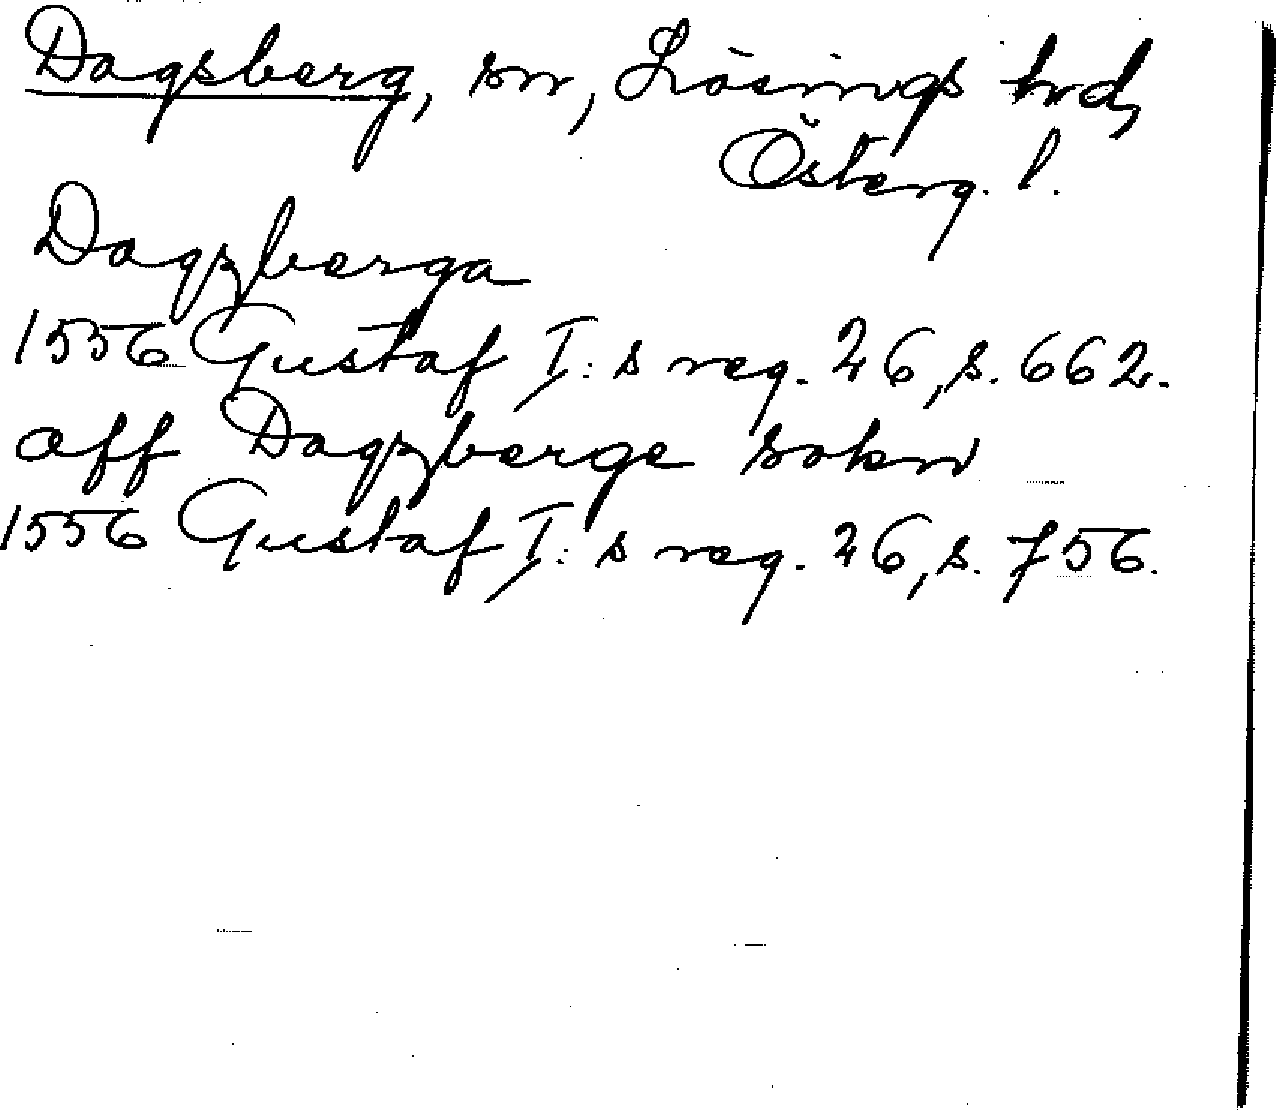 Dagsberg, sn, Lösings hrd,
Österg. l.
Dagzberga
1556 Gustaf I: s reg. 26, s. 662.
aff Dagzberge sokn
1556 Gustaf I: s reg. 26, s. 756.